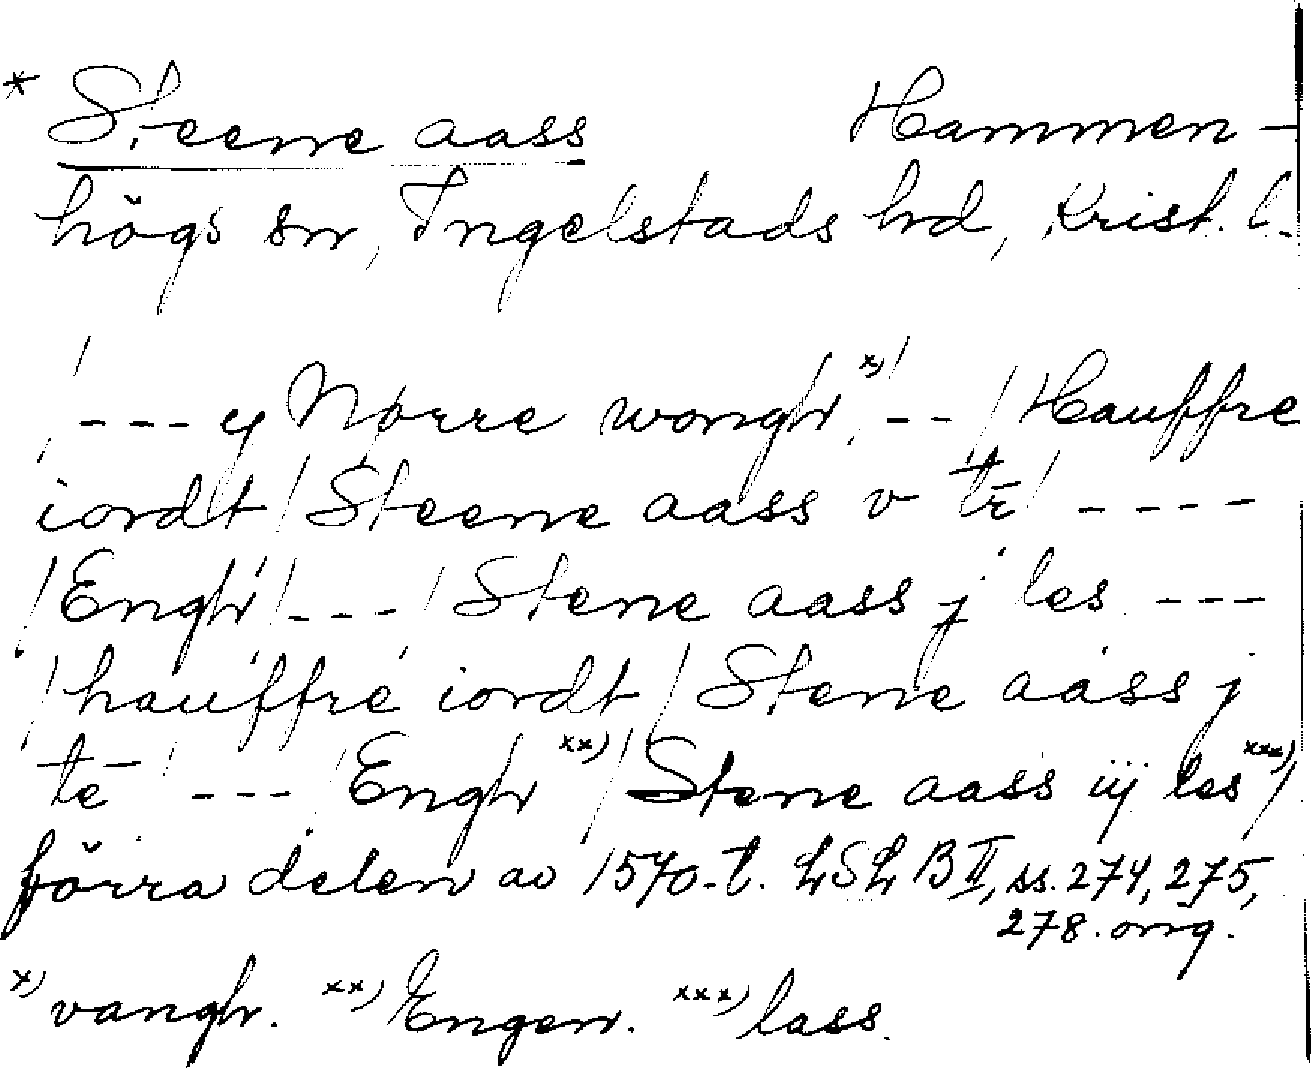 * Steene aass Hammen-
högs sn, Ingelstads hd, Krist. l.
/--- y Nørre wongh x) /--/ Hauffre
iordt / Steene aass v tr̄ / ----
/ Engh / --- / Stene aass j les ---
/ hauffre iordt / Stene aass j
te / --- / Engh xx) / Stene aass iij les xxx) /
förra delen av 1570-t. LSL B II, ss. 274, 275,
278. orig.
x) vangh. xx) Engen. xxx) lass.